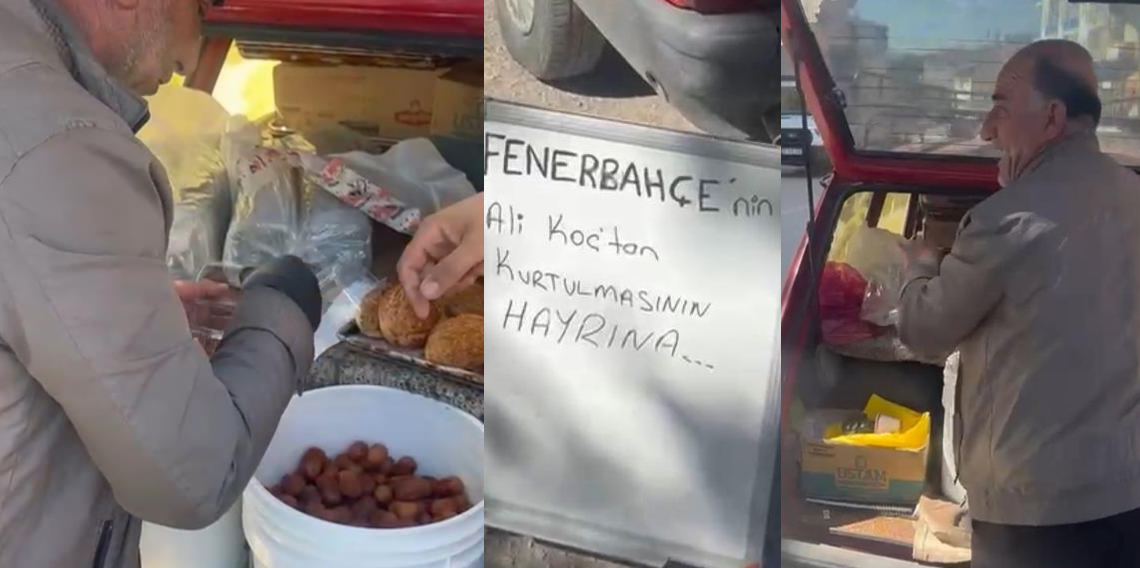 FENERBAHÇE'nin
Ali Koç'tan
KURTULMASININ
HAYRINA...
USTAM